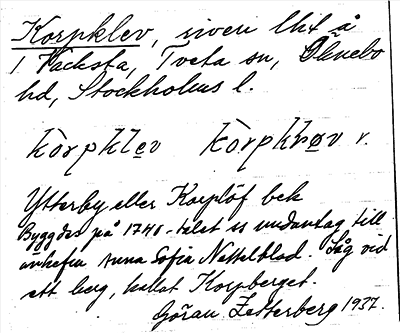 Korpklev, riven lht å
1 Vacksta, Tveta sn, Öknebo
hd, Stockholms l.
kòrpklev kòrpkrøv v.
Ytterby eller Korplöf bek
Byggdes på 1740-talet ss undantag till
änkefru Anna Sofia Nettelblad. Låg vid
ett berg, kallat Korpberget.
Göran Zetterberg 1937.